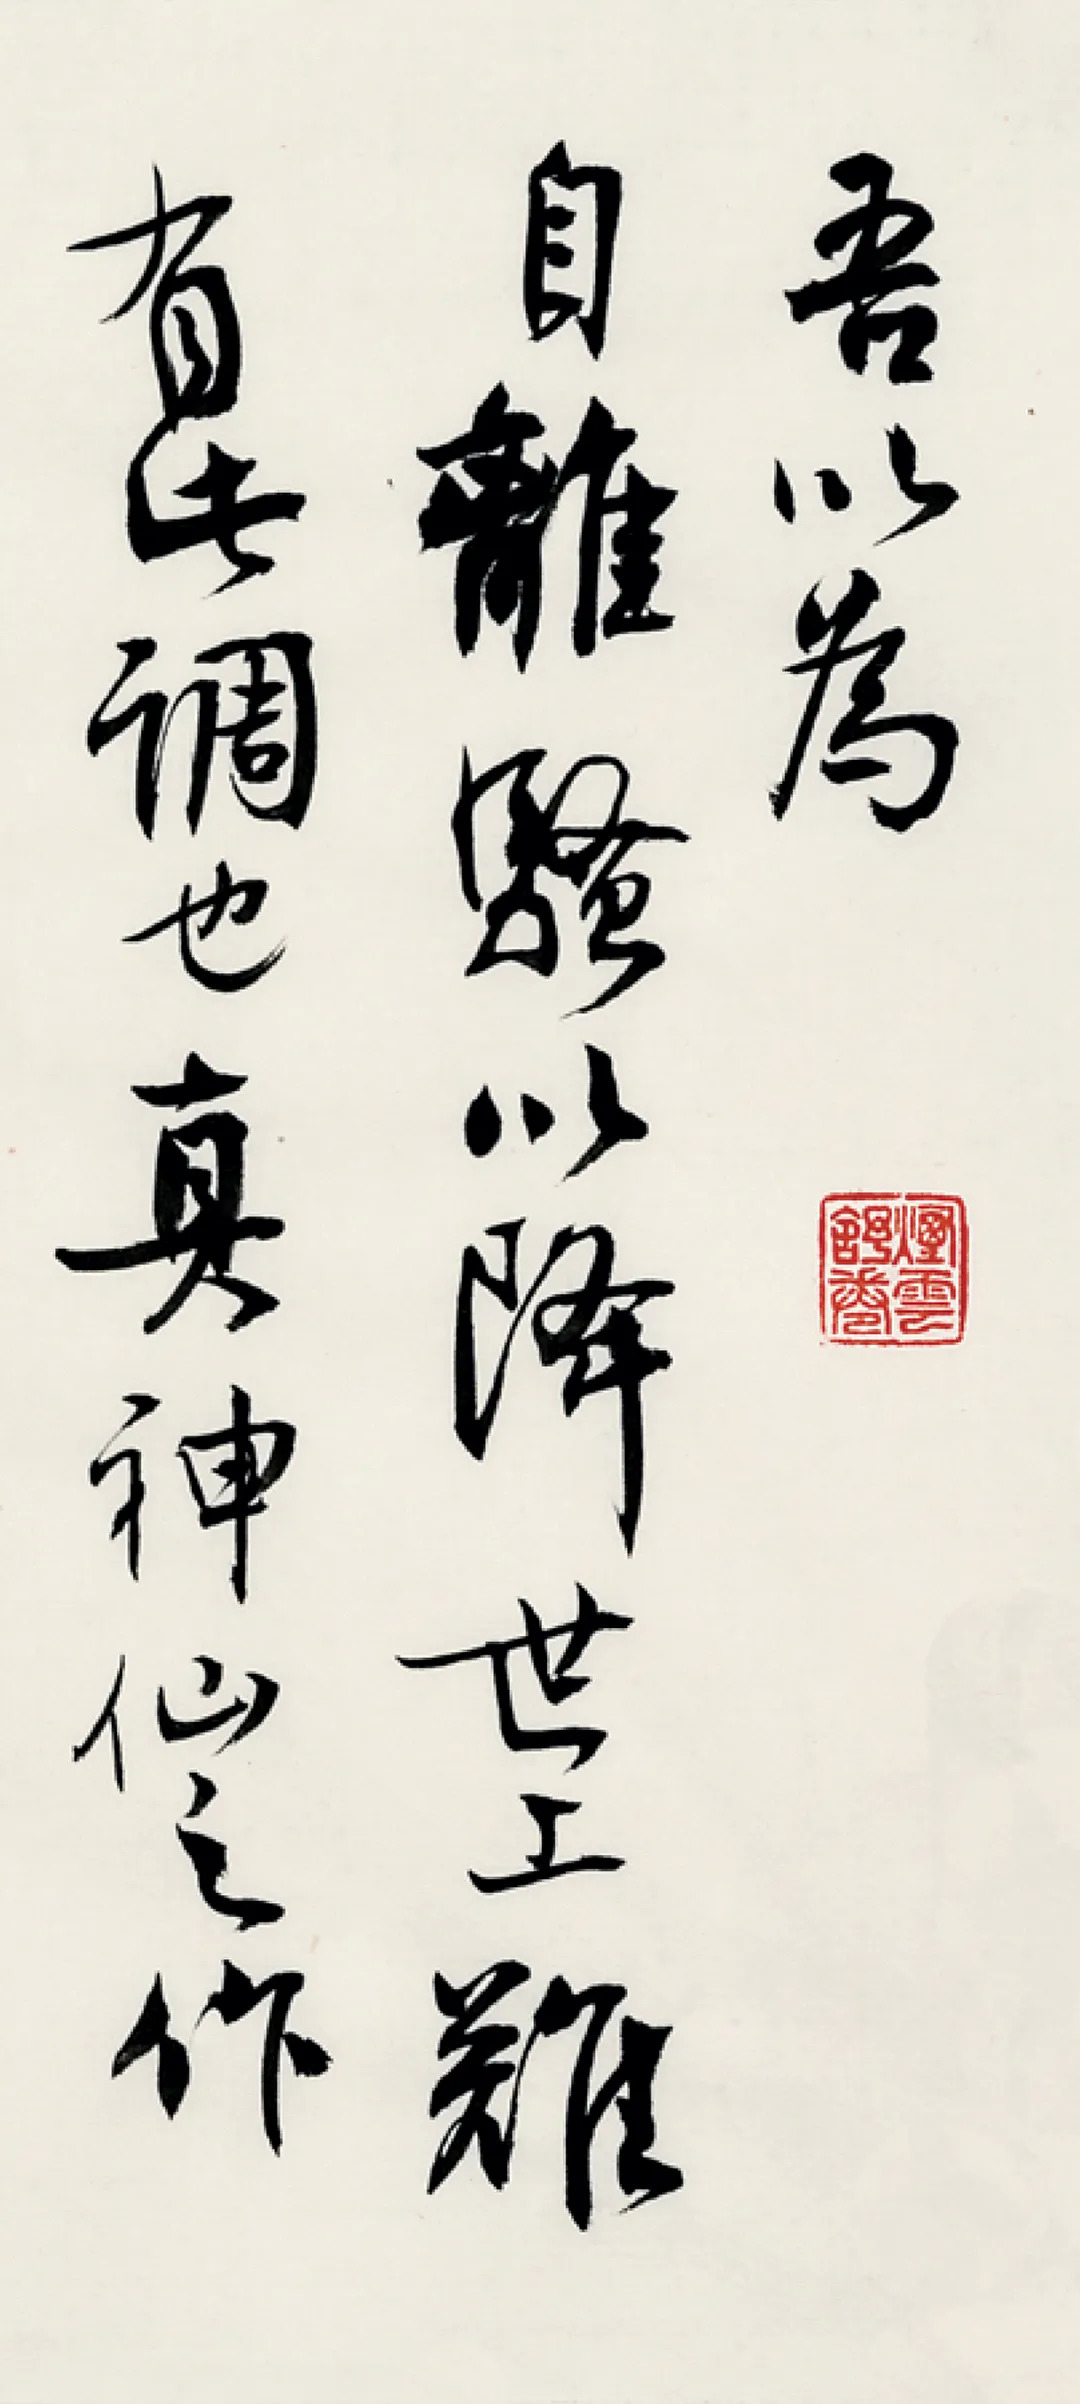 吾以為
自離騷以降世上難
有此调也真神仙之作
煙雲
舒卷